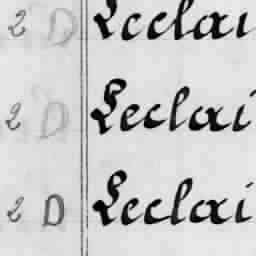 2 D Leclai
2 D Leclai
2 D Leclai